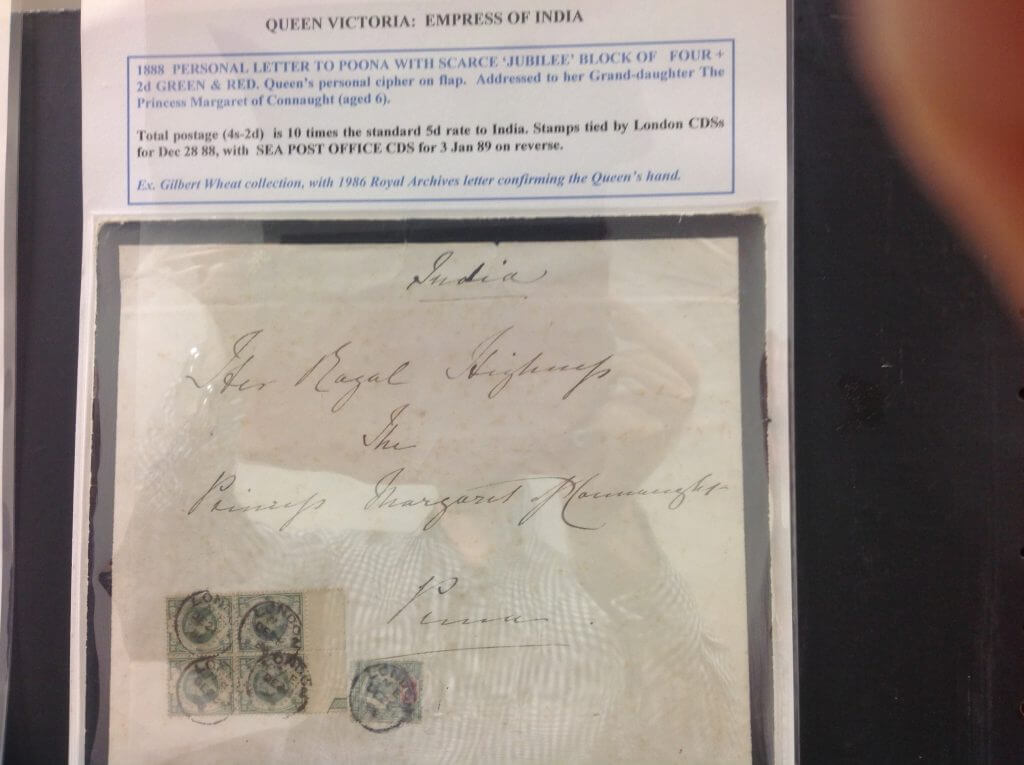 QUEEN VICTORIA: EMPRESS OF INDIA
1888 PERSONAL LETTER TO POONA WITH SCARCE ‘JUBILEE’ BLOCK OF FOUR +
2d GREEN & RED. Queen's personal cipher on flap. Addressed to her Grand-daughter The
Princess Margaret of Connaught (aged 6).
Total postage (4s-2d) is 10 times the standard 5d rate to India. Stamps tied by London CDSs
for Dec 28 88, with SEA POST OFFICE CDS for 3 Jan 89 on reverse.
Ex. Gilbert Wheat collection, with 1986 Royal Archives letter confirming the Queen's hand.
India
Her Royal Highness
The
Princess Margaret of Connaught
LONDON